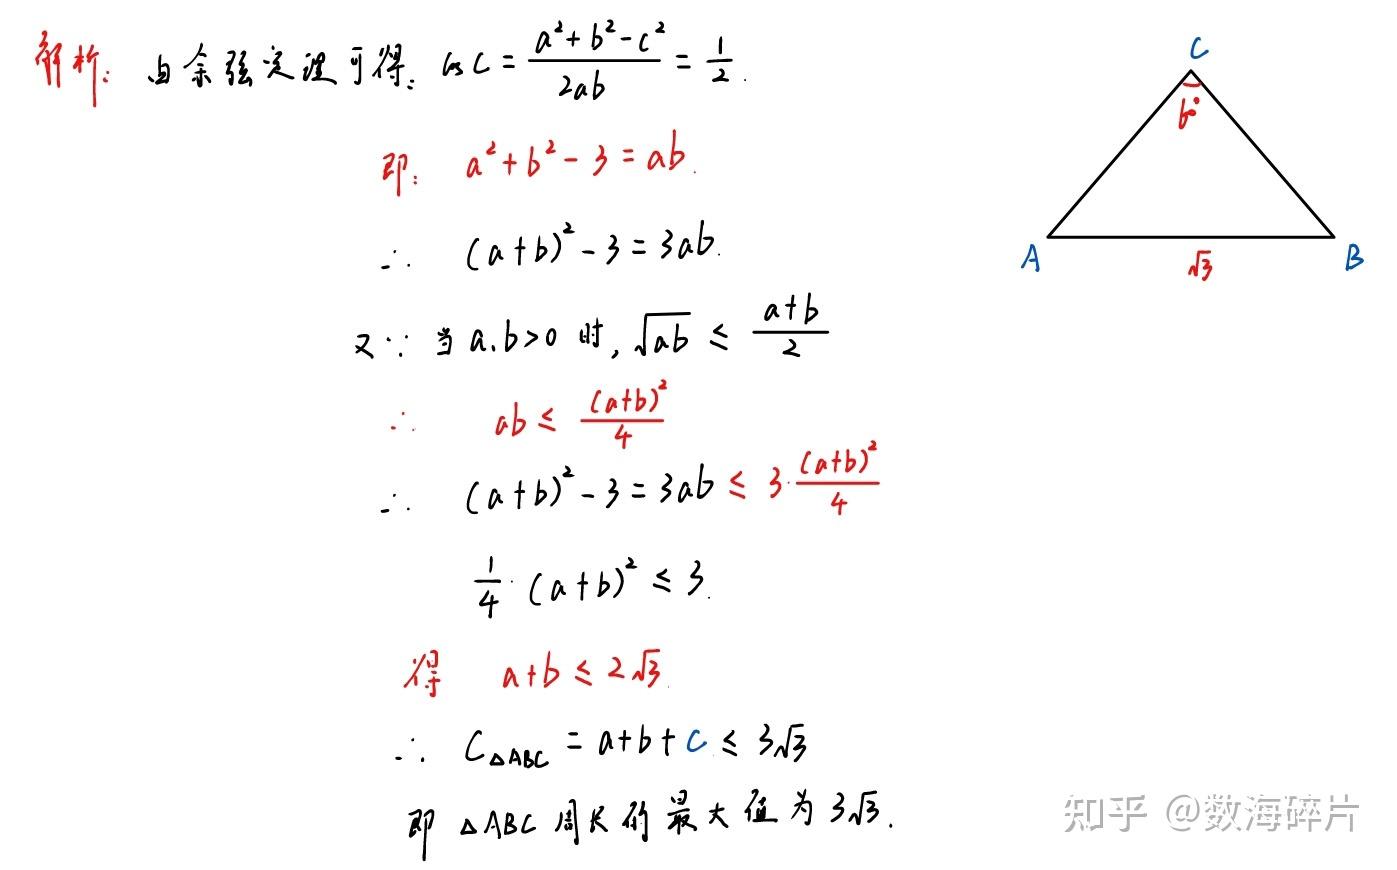 解析: 由余弦定理可得: cos C = \frac{a²+b²-c²}{2ab} = \frac{1}{2}.
即: a²+b²-3=ab.
∴ (a+b)²-3=3ab.
又∵ 当a.b>0时, √ab ≤ \frac{a+b}{2}
∴ ab ≤ \frac{(a+b)²}{4}
∴ (a+b)²-3=3ab ≤ 3·\frac{(a+b)²}{4}
\frac{1}{4}·(a+b)² ≤ 3.
得 a+b ≤ 2√3.
∴ C△ABC = a+b+c ≤ 3√3
即 △ABC 周长的最大值为 3√3.
C
60°
A
√3
B
知乎 @数海碎片